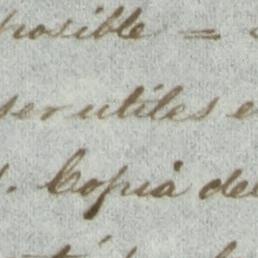 posible =
ser utiles e
. Copia del